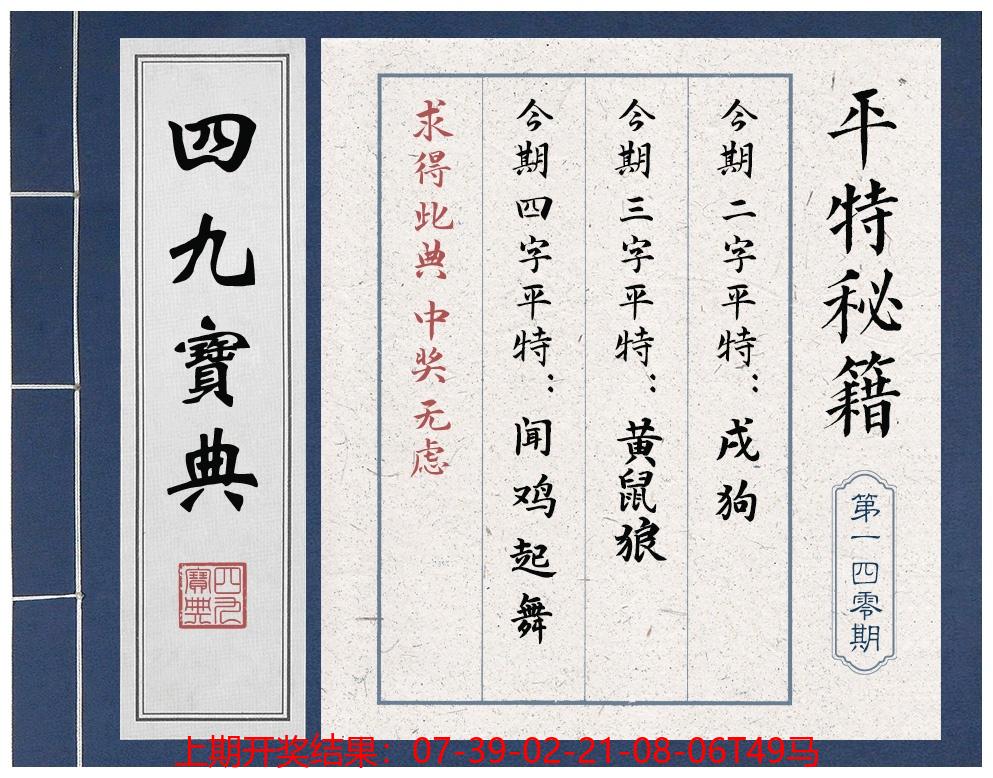 平特秘籍
第一四零期
今期二字平特：戌狗
今期三字平特：黄鼠狼
今期四字平特：闻鸡起舞
求得此典 中奖无虑
四九寶典
四九寶典
上期开奖结果：07-39-02-21-08-06T49马